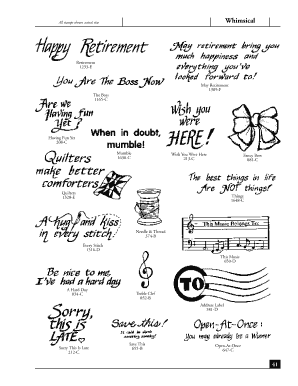 All stamps shown actual size
Whimsical
Happy Retirement
Retirement
1251-F
May retirement bring you
much happiness and
everything you've
looked forward to!
May Retirement
1209-F
You Are The Boss Now
The Boss
1165-C
Are we
Having fun
Yet?
Having Fun Yet
208-C
When in doubt,
mumble!
Mumble
1650-C
Wish you
were
HERE!
Wish You Were Here
213-C
Fancy Bow
Quilters
make better
comforters
Quilters
1528-E
The best things in life
Are NOT things!
Things
A hug and kiss
in every stitch.
Every Stitch
1516-D
Needle & Thread
574-B
This Music Belongs To:
This Music
650-D
Be nice to me,
I've had a hard day
A Hard Day
834-C
Treble Clef
852-B
TO:
Address Label
Sorry,
this is
LATE.
Sorry This Is Late
212-C
Save this!
Save This
655-B
Open-At-Once:
You may already be a Winner
Open At Once
647-C
41